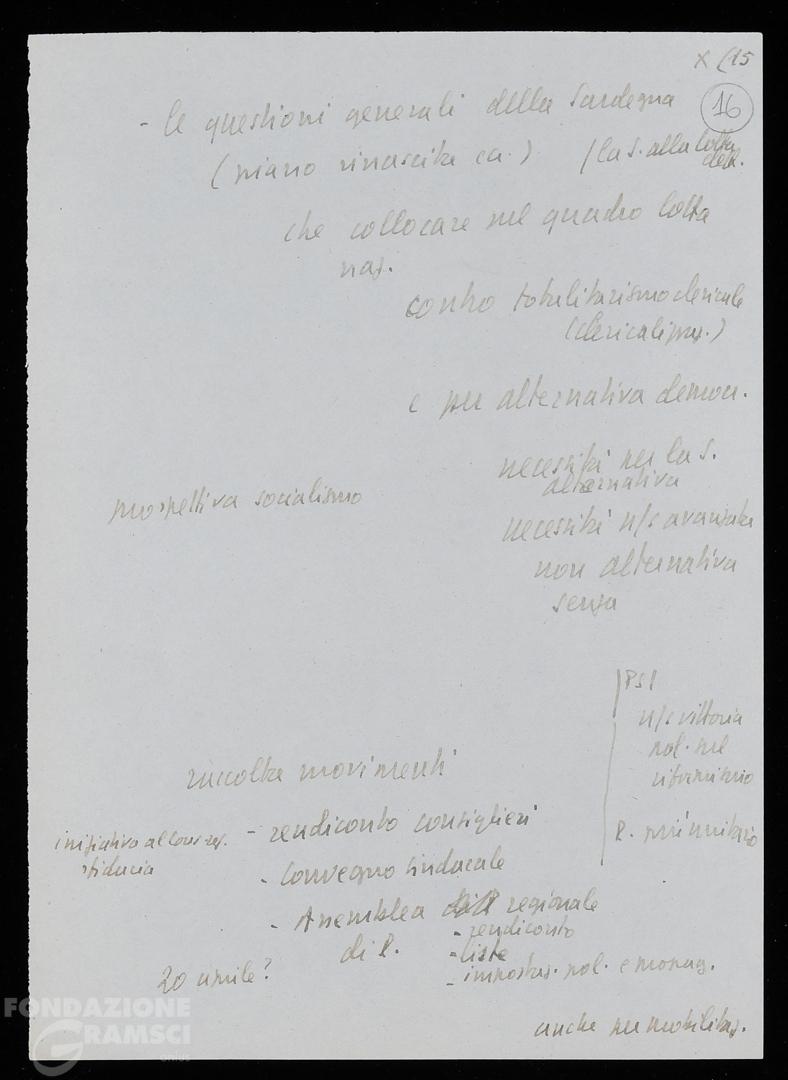 X (15
16
- le questioni generali della Sardegna
(piano rinascita ca.) (la S. alla lotta
che collocare nel quadro lotta
naz.
contro totalitarismo clericale
(clericalizz.)
e per alternativa democr.
necessità per la S.
alternativa
prospettiva socialismo
necessità n/s avanzata
non alternativa
senza
PSI
n/s vittoria
pol. nel
raccolta movimenti
iniziativa al Cons. reg. - rendiconto consiglieri
sfiducia
P. più unitario
- Convegno sindacale
- Assemblea regionale
di P.
- rendiconto
- liste
- impostaz. pol. e
20 aprile?
anche per mobilitaz.
FONDAZIONE
GRAMSCI
onlus